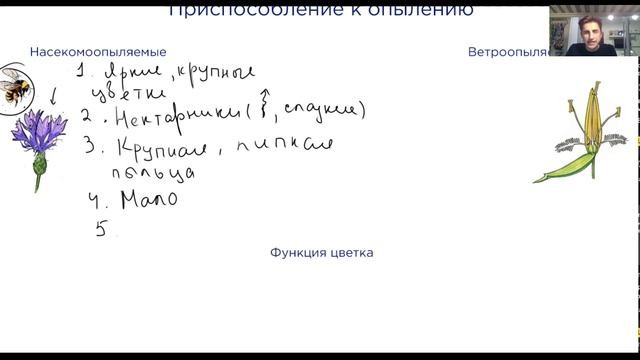 Приспособление к опылению
Насекомоопыляемые
Ветроопыляе
1. Яркие, крупные
цветки
2. Нектарники ( }, сладкие)
3. Крупная, липкая
пыльца
4. Мало
5.
Функция цветка